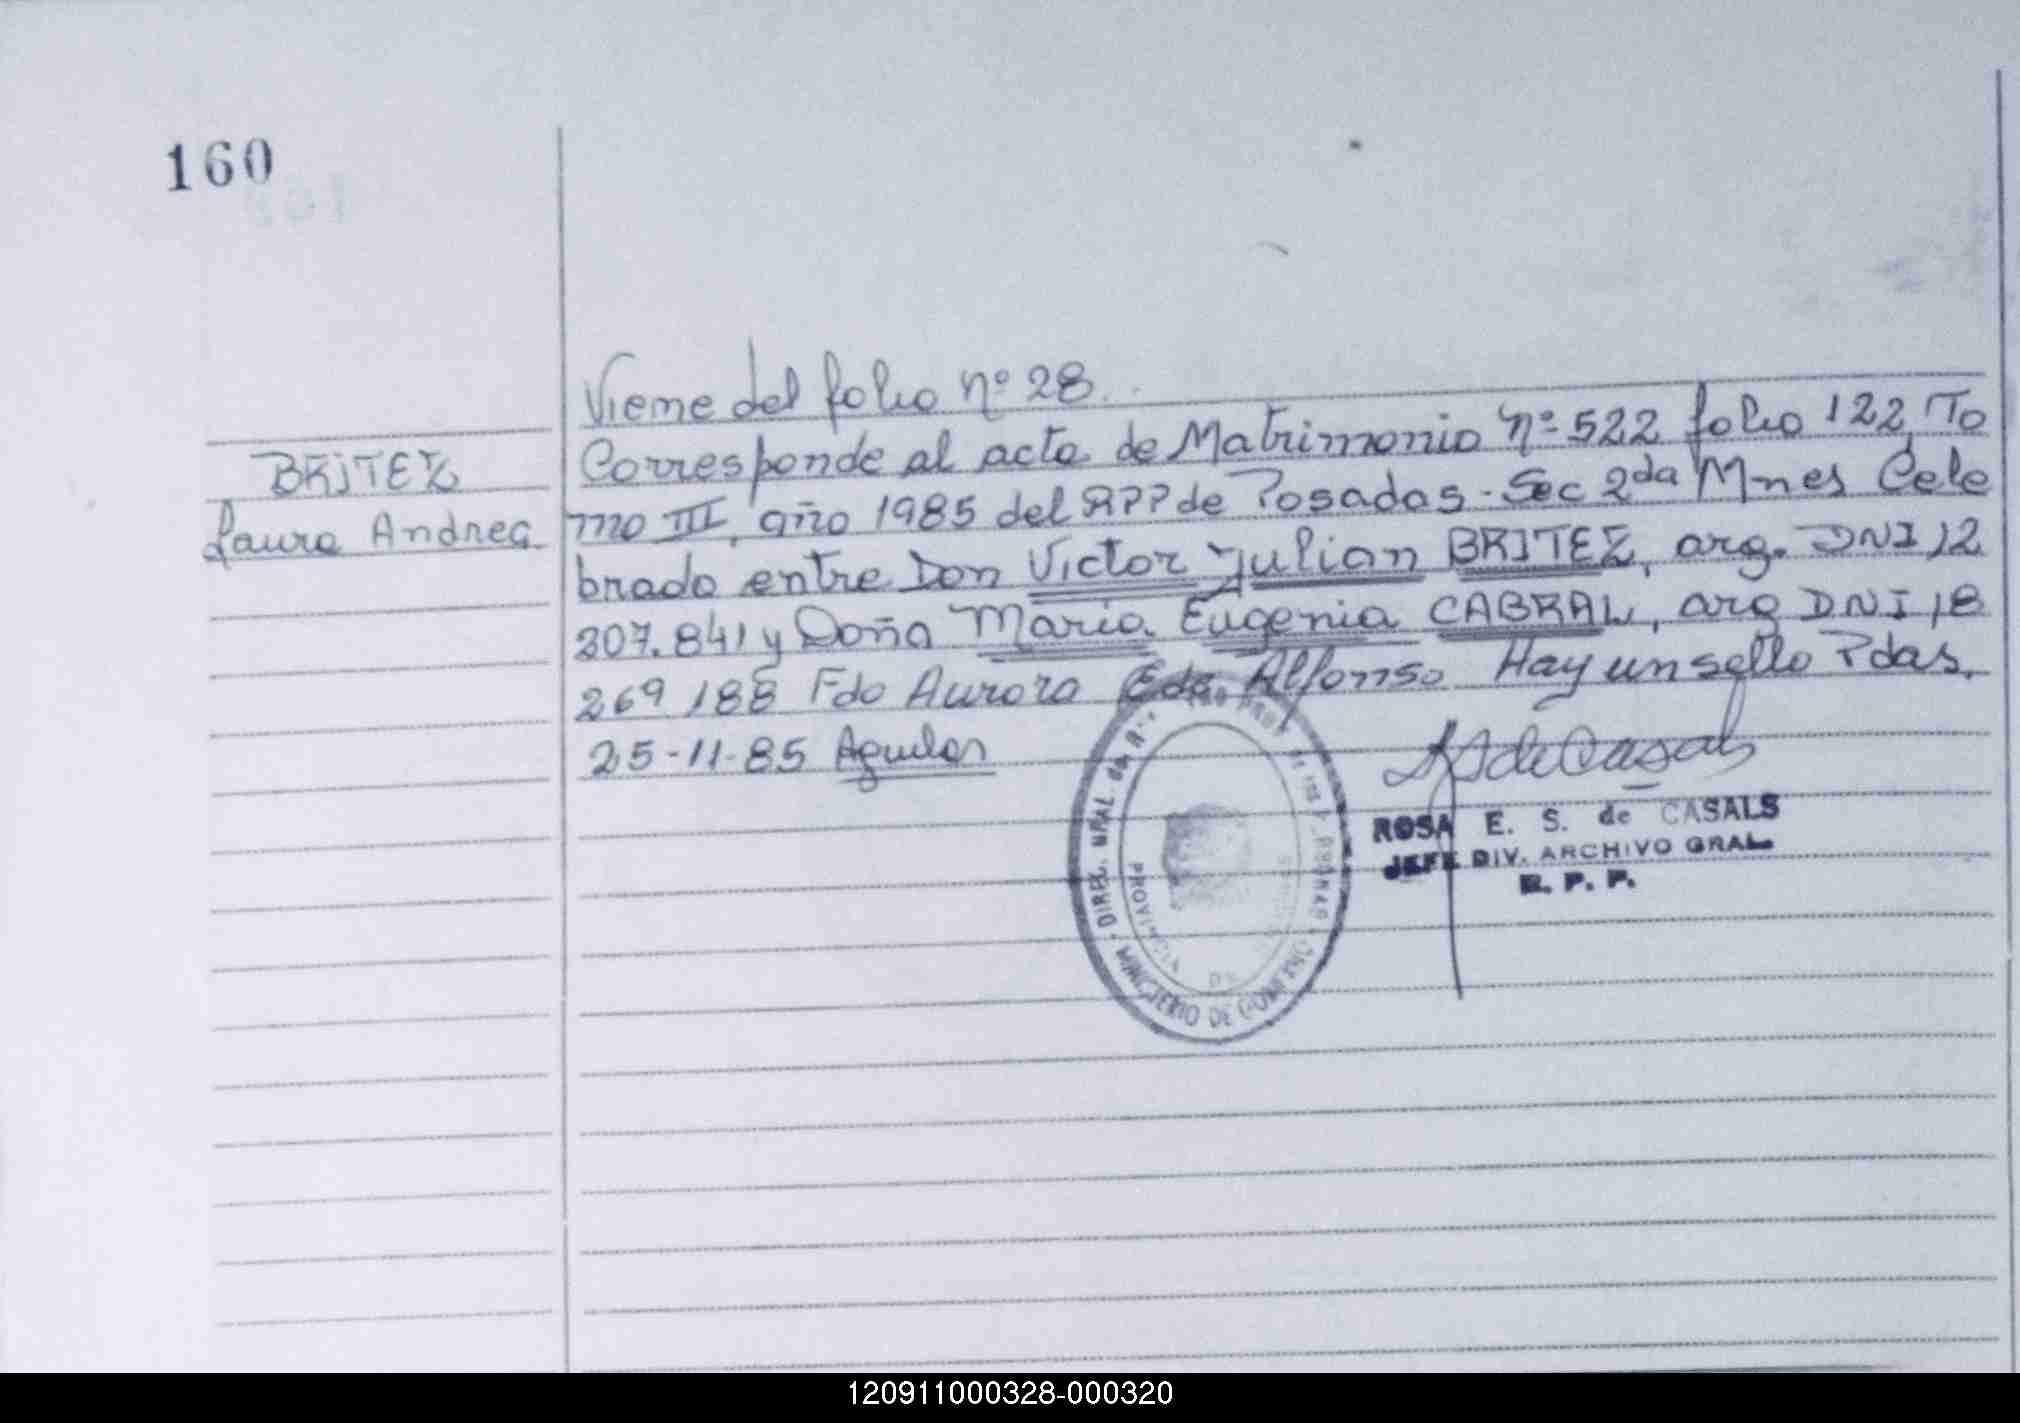 160
BRITEZ
Laura Andrea
Viene del folio nº 28.
Corresponde al acta de Matrimonio nº 522 folio 122 To
mo III, año 1985 del RPP de Posadas - Sec 2da Mnes Cele
brado entre Don Victor Julian BRITEZ, arg. DNI 12
207.841 y Doña Maria Eugenia CABRAL, arg DNI 18
269 188 Fdo Aurora Alfonso Hay un sello Pdas,
25-11-85 Aguilar
ROSA E. S. de CASALS
JEFE DIV. ARCHIVO GRAL
R. P. P.
MINISTERIO DE GOBIERNO
120911000328-000320